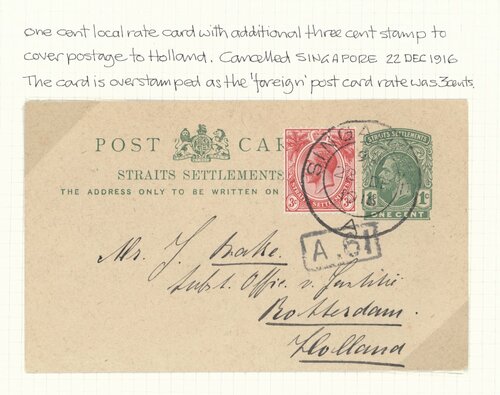 one cent local rate card with additional three cent stamp to
cover postage to Holland. Cancelled SINGAPORE 22 DEC 1916
The card is overstamped as the 'foreign' post card rate was 3cents.
POST CAR
STRAITS SETTLEMENTS
THE ADDRESS ONLY TO BE WRITTEN ON
STRAITS SETTLEMENTS
1c
ONE CENT
3c
SINGA
A.61
Mr. J. Bake.
Subst. Offic. v. Justitie
Rotterdam.
Holland